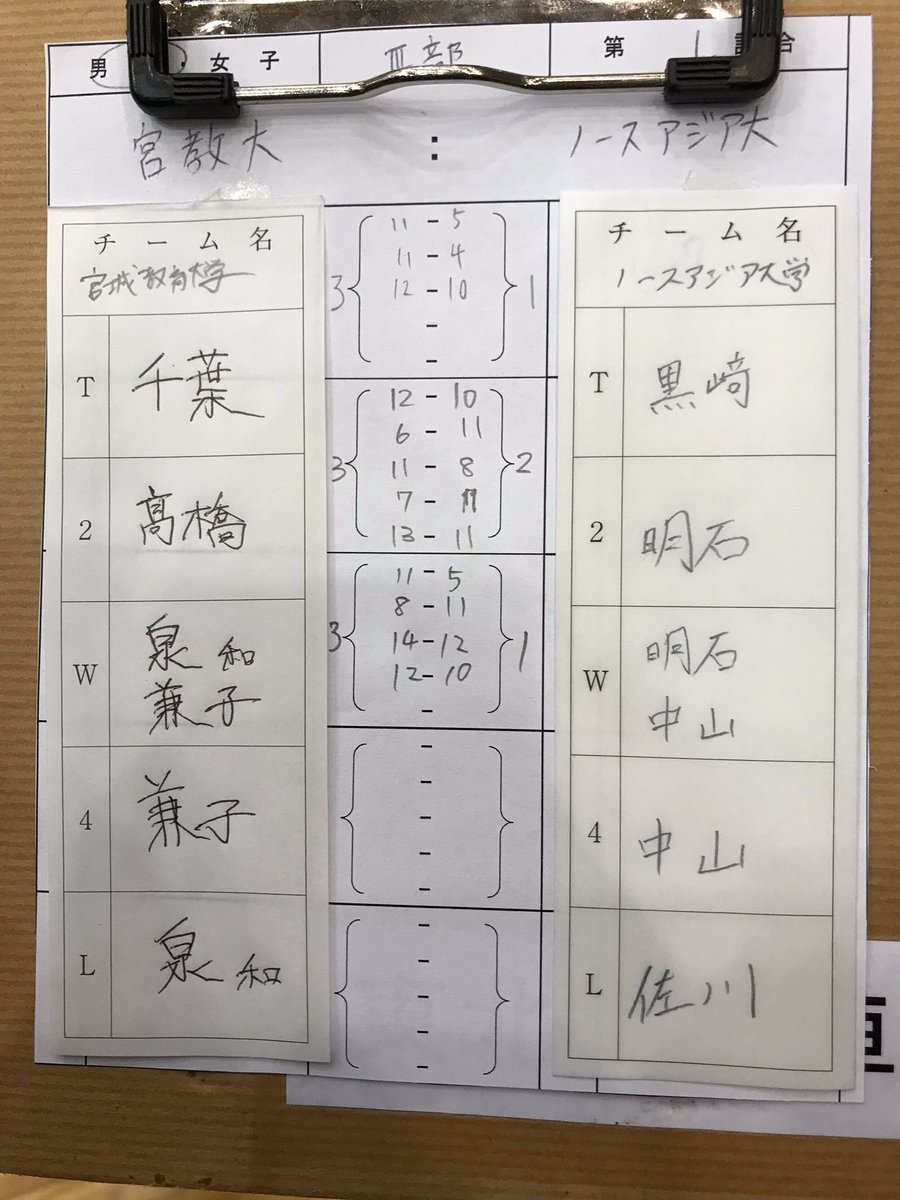 男 ・ 女 子 Ⅲ部 第 1 試 合
宮教大 : ノースアジア大
チ ー ム 名
宮城教育大学
T 千葉
2 髙橋
W 泉 和
兼子
4 兼子
L 泉 和
3 1
11 - 5
11 - 4
12 - 10
-
-
3 2
12 - 10
6 - 11
11 - 8
7 - 11
13 - 11
3 1
11 - 5
8 - 11
14 - 12
12 - 10
-
-
-
-
-
-
-
-
-
-
-
チ ー ム 名
ノースアジア大学
T 黒崎
2 明石
W 明石
中山
4 中山
L 佐川